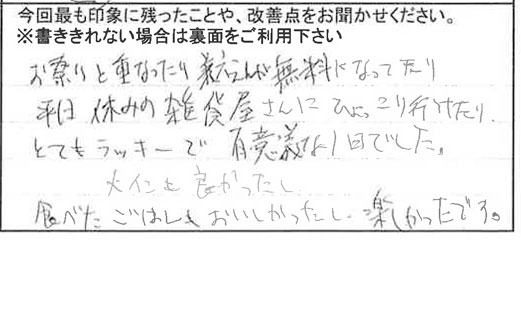 今回最も印象に残ったことや、改善点をお聞かせください。
※書ききれない場合は裏面をご利用下さい
お祭りと重なったり 無料になってたり
平日 休みの雑貨屋さんに ひょっこり行けたり、
とてもラッキーで 有意義な1日でした。
メインも良かったし
食べたごはんもおいしかったし、楽しかったです。